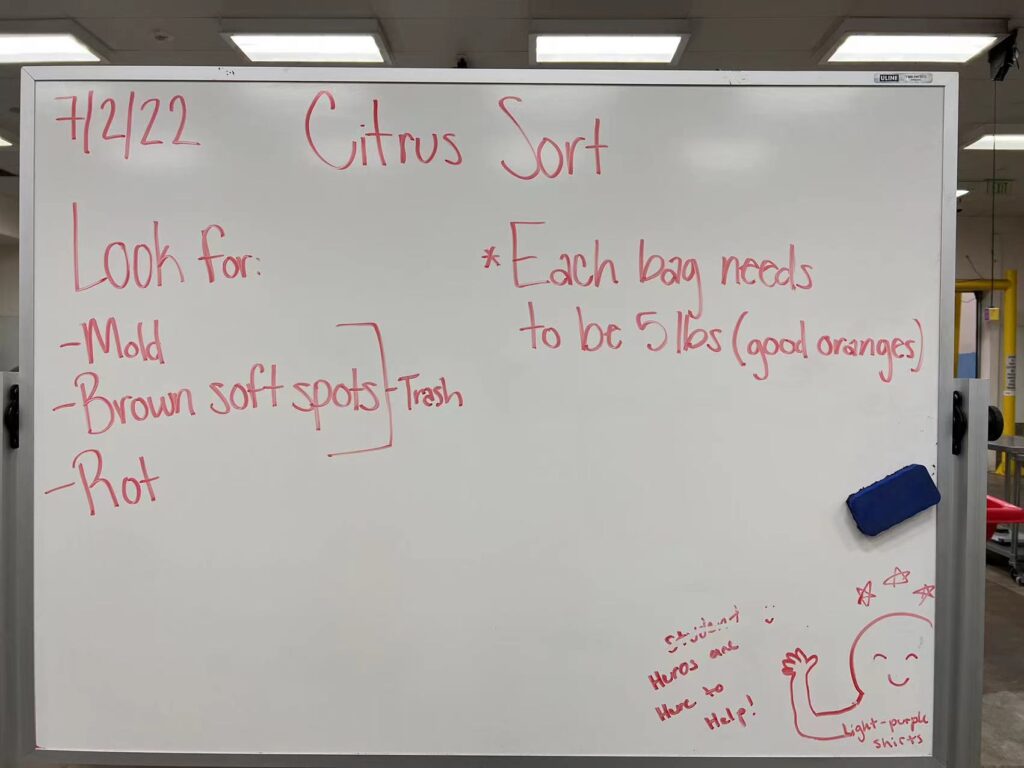 7/2/22
Citrus Sort
Look for:
-Mold
-Brown soft spots
-Rot
-Trash
* Each bag needs
to be 5 lbs (good oranges)
Student
Heros are
Here to
Help!
Light-purple
shirts
ULINE
EXIT